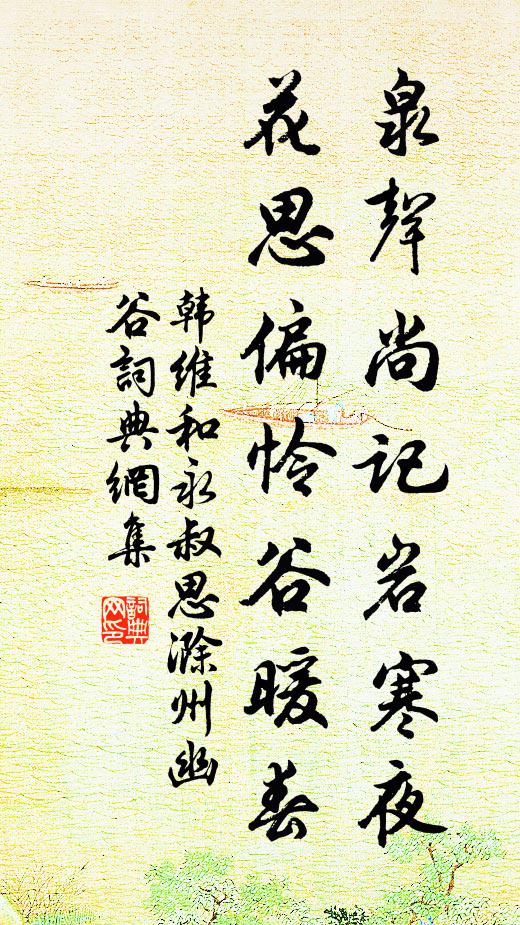 泉聲尚记岩寒夜
花思偏怜谷暖春
韩维和永叔思滁州幽
谷詞典網集
詞典网印